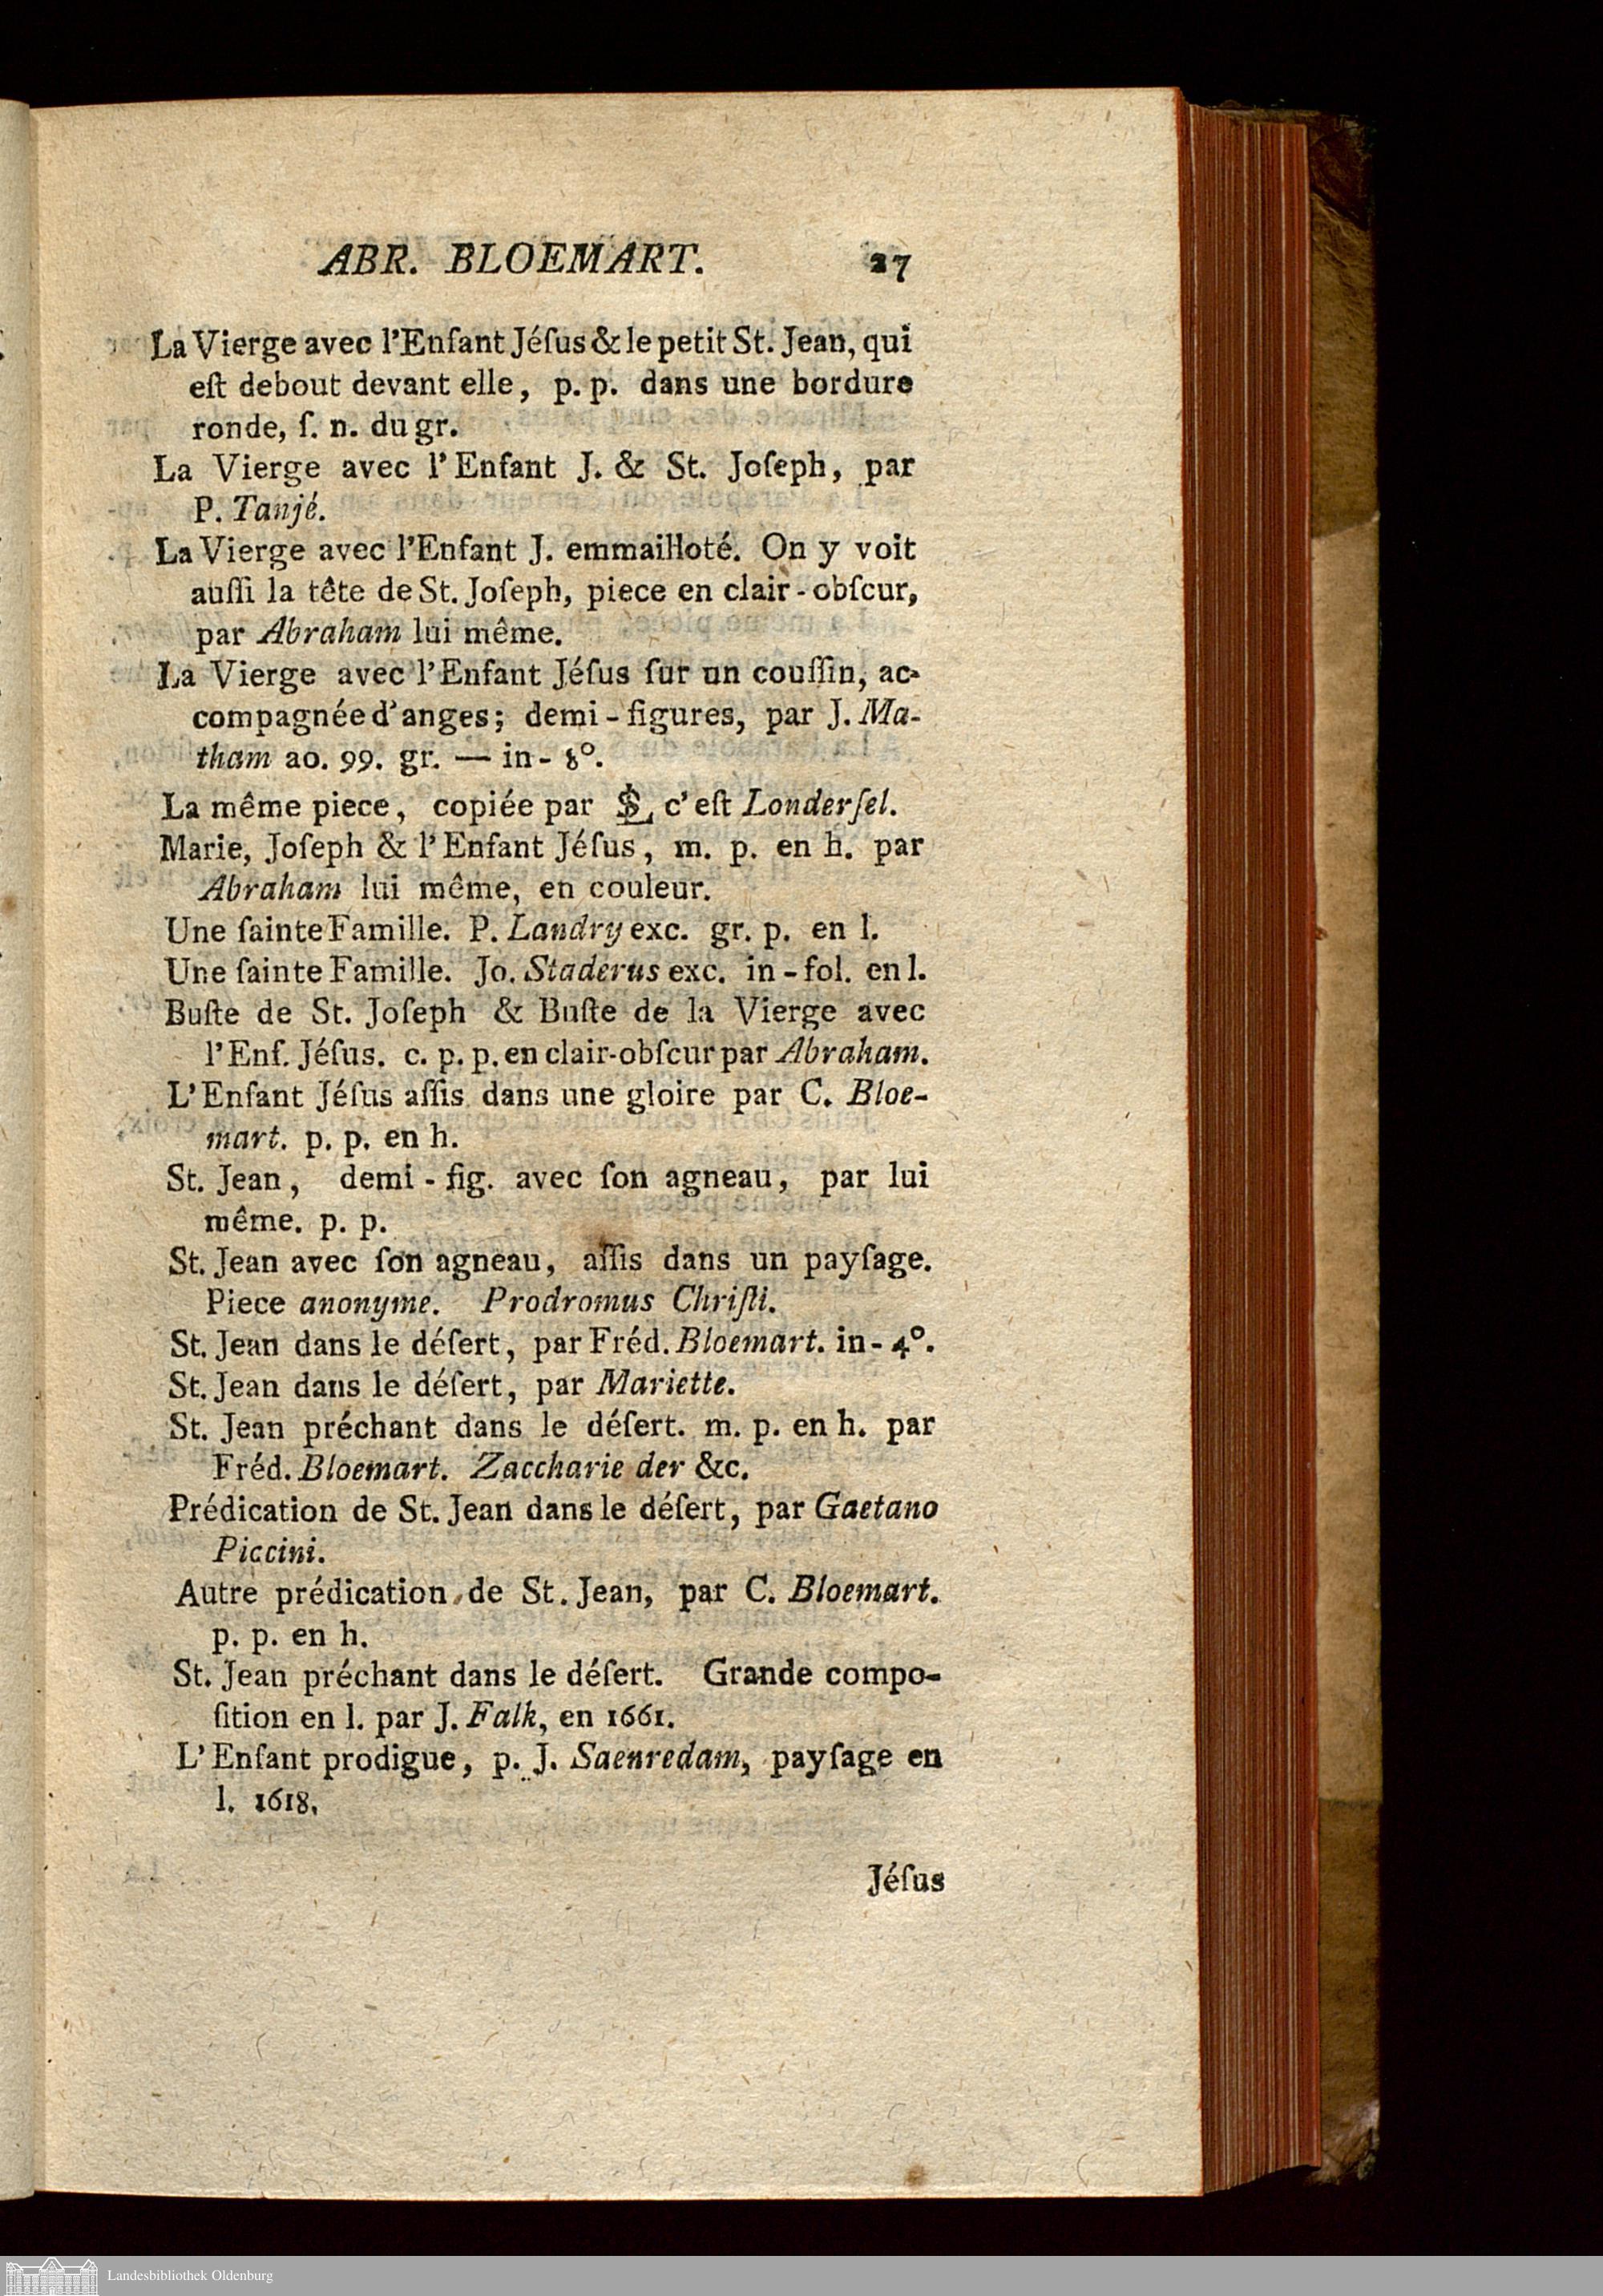 ABR. BLOEMART. 27
La Vierge avec l'Enfant Jéſus & le petit St. Jean, qui
eſt debout devant elle, p. p. dans une bordure
ronde, ſ. n. du gr.
La Vierge avec l'Enfant J. & St. Joſeph, par
P. Tanjé.
La Vierge avec l'Enfant J. emmailloté. On y voit
auſſi la tête de St. Joſeph, piece en clair-obſcur,
par Abraham lui même.
La Vierge avec l'Enfant Jéſus ſur un couſſin, ac-
compagnée d'anges; demi-figures, par J. Ma-
tham ao. 99. gr. — in-8°.
La même piece, copiée par c'eſt Londerſel.
Marie, Joſeph & l'Enfant Jéſus, m. p. en h. par
Abraham lui même, en couleur.
Une ſainte Famille. P. Landry exc. gr. p. en l.
Une ſainte Famille. Jo. Staderus exc. in-fol. en l.
Buſte de St. Joſeph & Buſte de la Vierge avec
l'Enf. Jéſus. c. p. p. en clair-obſcur par Abraham.
L'Enfant Jéſus aſſis dans une gloire par C. Bloe-
mart. p. p. en h.
St. Jean, demi-fig. avec ſon agneau, par lui
même. p. p.
St. Jean avec ſon agneau, aſſis dans un payſage.
Piece anonyme. Prodromus Chriſti.
St. Jean dans le déſert, par Fréd. Bloemart. in-4°.
St. Jean dans le déſert, par Mariette.
St. Jean préchant dans le déſert. m. p. en h. par
Fréd. Bloemart. Zaccharie der &c.
Prédication de St. Jean dans le déſert, par Gaetano
Piccini.
Autre prédication de St. Jean, par C. Bloemart.
p. p. en h.
St. Jean préchant dans le déſert. Grande compo-
ſition en l. par J. Falk, en 1661.
L'Enfant prodigue, p. J. Saenredam, payſage en
l. 1618.
Jéſus
Landesbibliothek Oldenburg